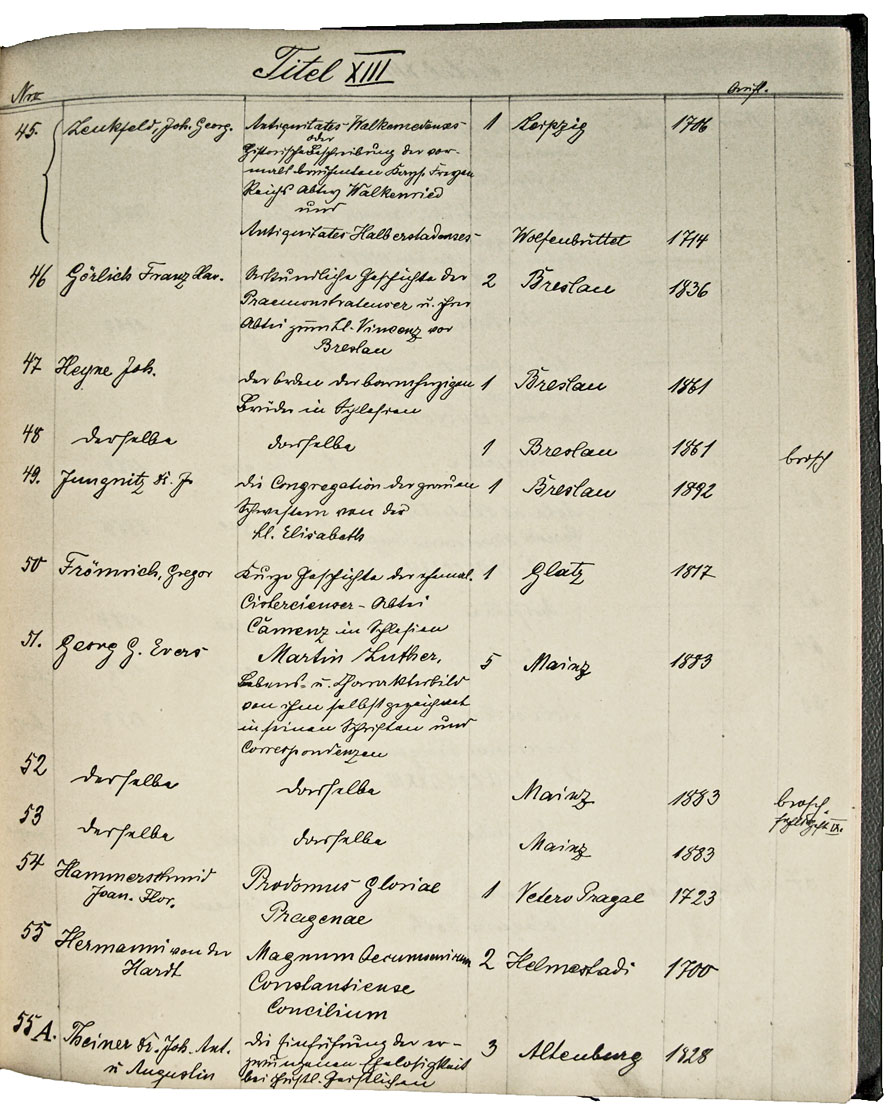 Titel XIII
Nro
45. Leukfeld, Joh. Georg. Antiquitates Walkenredenses 1 Leipzig 1706
oder
Historische Beschreibung der vor-
mals berühmten Kays. Freyen
Reichs Abtey Walkenried
und
Antiquitates Halberstadenses Wolfenbüttel 1714
46 Görlich Franz Xav. Urkundliche Geschichte der 2 Breslau 1836
Praemonstratenser u. ihrer
Abtei zum hl. Vincenz vor
Breslau
47 Heyne Joh.
Der Orden der barmherzigen 1 Breslau 1861
Brüder in Schlesien
48 derselbe dasselbe 1 Breslau 1861 brosch
49. Jungnitz Dr. J. Die Congregation der grauen 1 Breslau 1892
Schwestern von der
hl. Elisabeth
50 Frömrich, Gregor Kurze Geschichte der ehemal. 1 Glatz 1817
Cistercienser-Abtei
Camenz in Schlesien
51. Georg G. Evers Martin Luther, 5 Mainz 1883
Lebens- u. Charakterbild
von ihm selbst gezeichnet
in seinen Schriften und
Correspondenzen
52 derselbe dasselbe Mainz 1883 brosch.
53 derselbe dasselbe Mainz 1883
54 Hammerschmid Prodomus Gloriae 1 Vetero Pragae 1723
Joan. Flor. Pragenae
55 Hermanni von der Magnum Oecumenicum 2 Helmestadi 1700
Hardt Constantiense
Concilium
55 A. Theiner Dr. Joh. Ant. Die Einführung der er- 3 Altenburg 1828
u Augustin zwungenen Ehelosigkeit
bei christl. Geistlichen